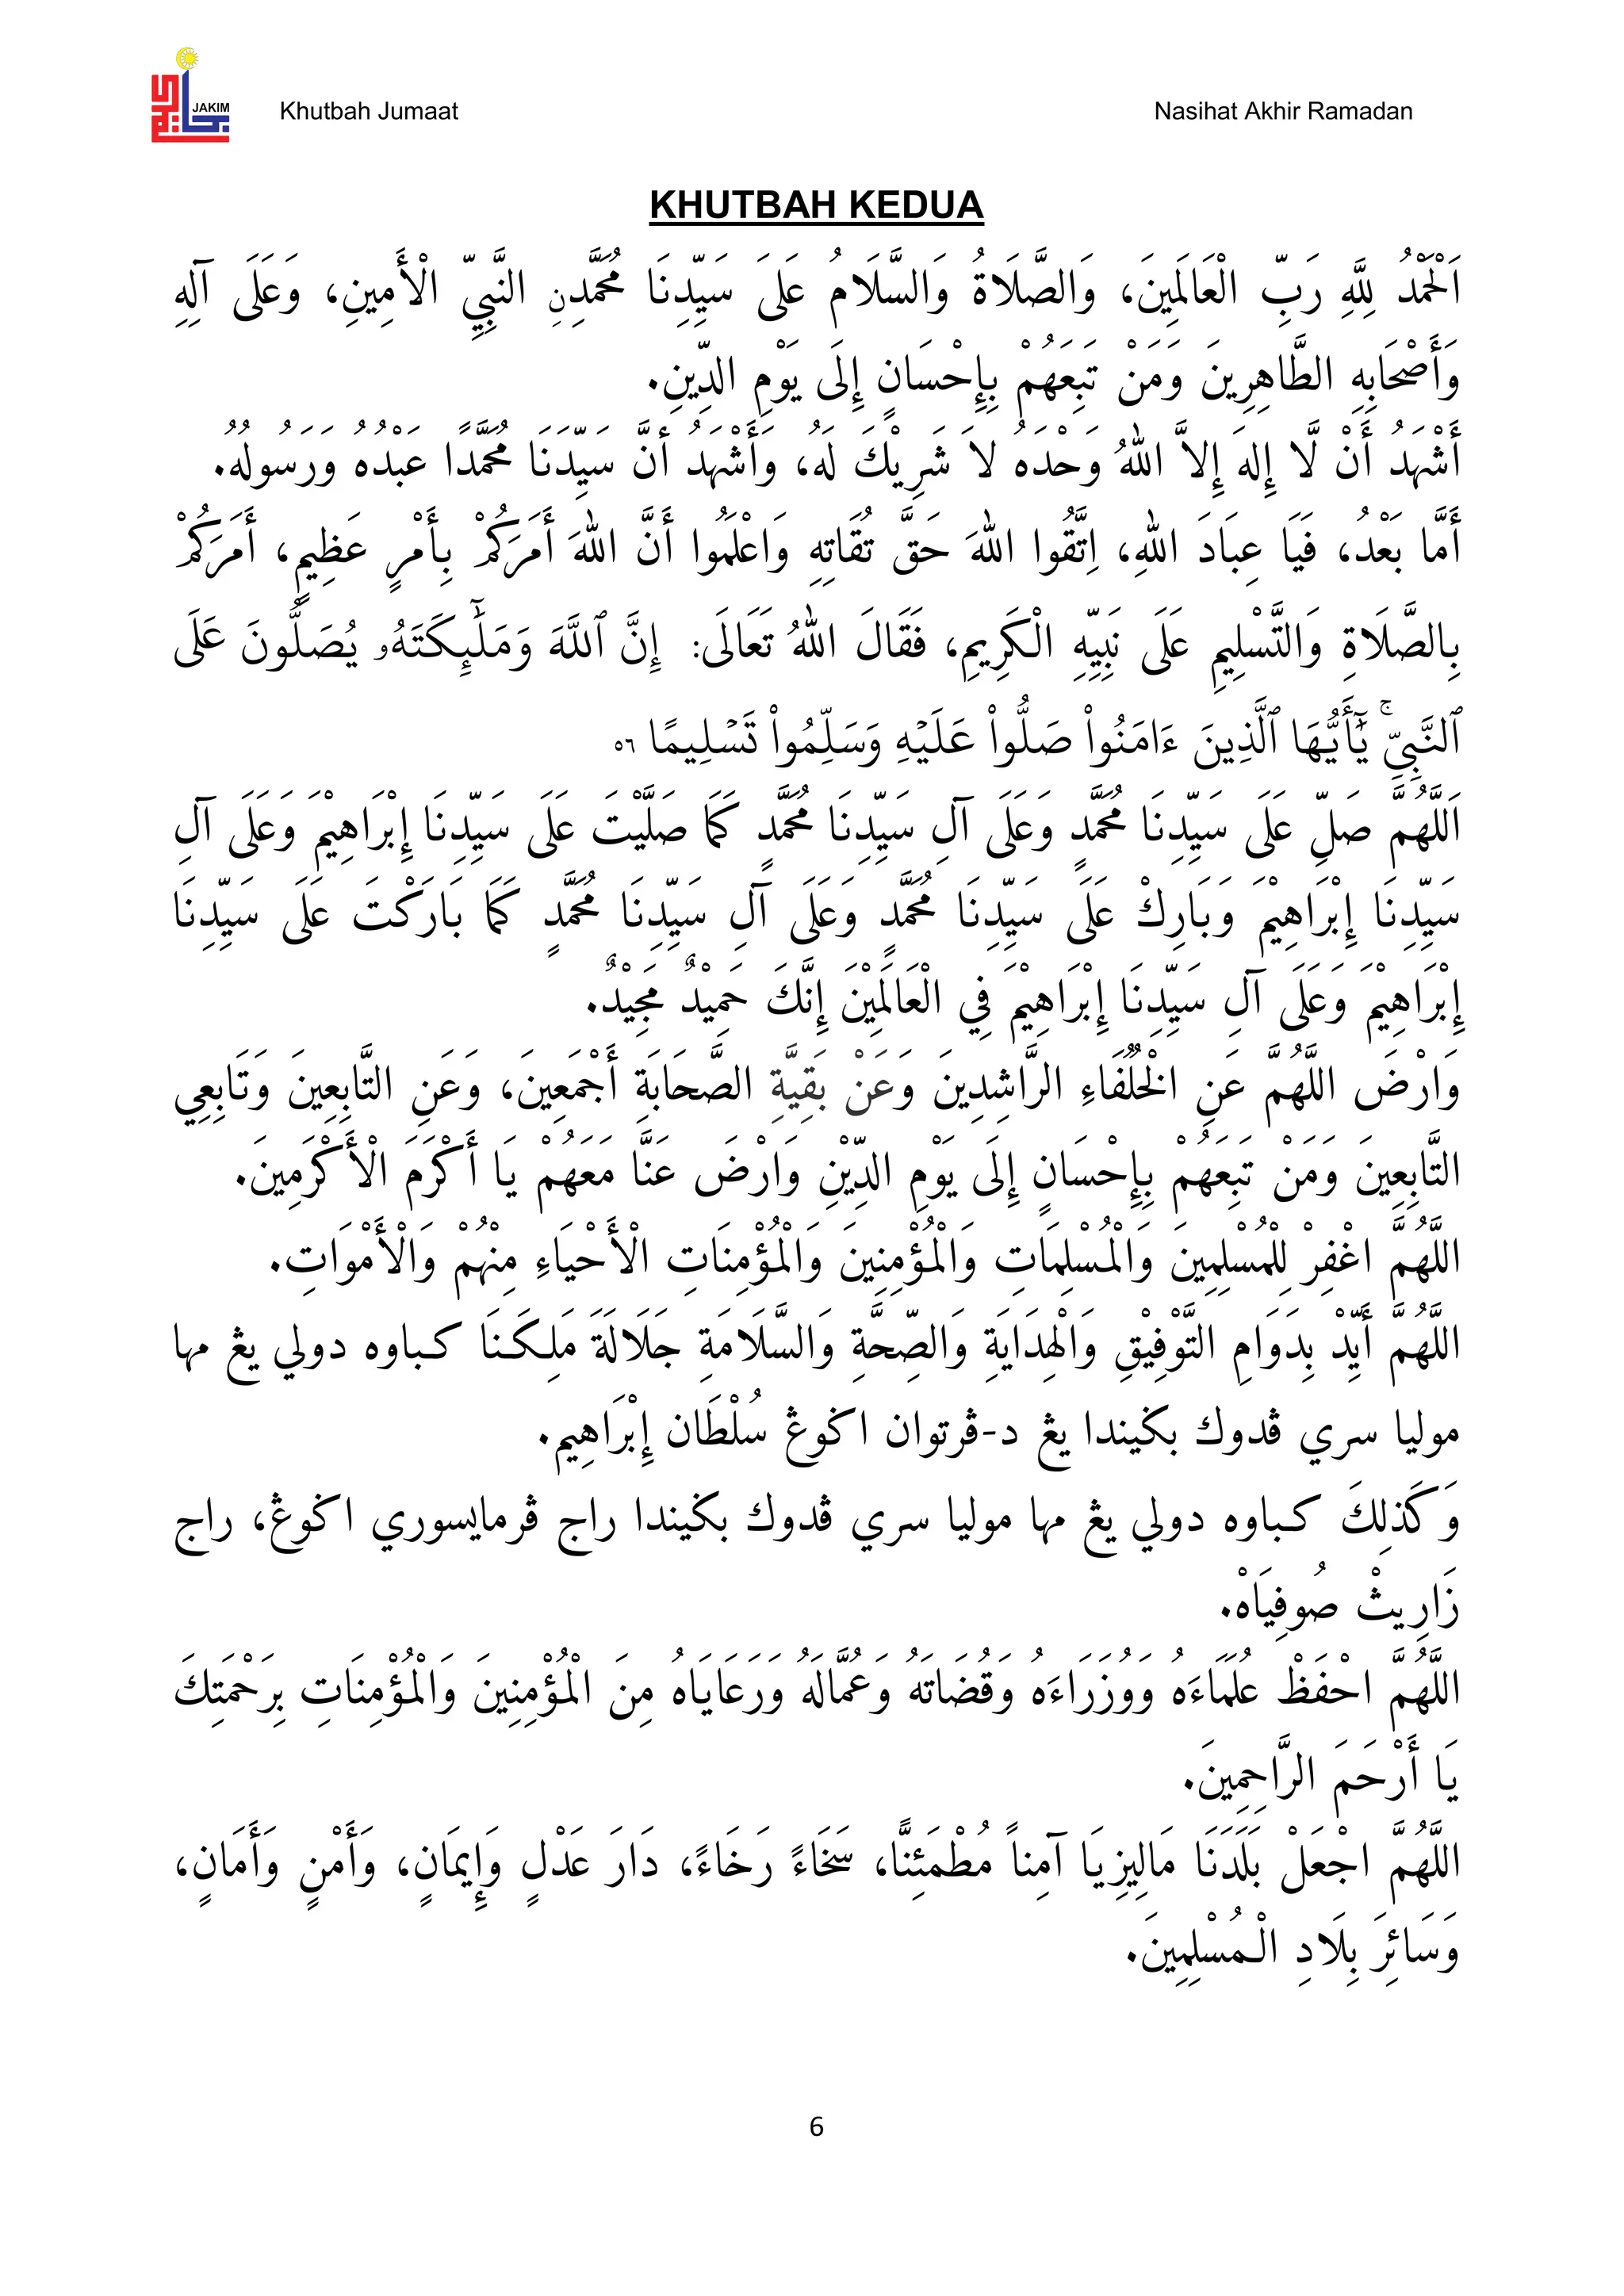 JAKIM
Khutbah Jumaat
Nasihat Akhir Ramadan
KHUTBAH KEDUA
اَلْحَمْدُ لِلَّهِ رَبِّ الْعَالَمِينَ، وَالصَّلَاةُ وَالسَّلَامُ عَلَى سَيِّدِنَا مُحَمَّدِنِ النَّبِيِّ الْأَمِينِ، وَعَلَى آلِهِ
وَأَصْحَابِهِ الطَّاهِرِينَ وَمَنْ تَبِعَهُمْ بِإِحْسَانٍ إِلَى يَوْمِ الدِّينِ.
أَشْهَدُ أَنْ لَّا إِلهَ إِلاَّ اللهُ وَحْدَهُ لاَ شَرِيْكَ لَهُ، وَأَشْهَدُ أَنَّ سَيِّدَنَا مُحَمَّدًا عَبْدُهُ وَرَسُولُهُ.
أَمَّا بَعْدُ، فَيَا عِبَادَ اللهِ، اِتَّقُوا اللهَ حَقَّ تُقَاتِهِ وَاعْلَمُوا أَنَّ اللهَ أَمَرَكُمْ بِأَمْرٍ عَظِيمٍ، أَمَرَكُمْ
بِالصَّلَاةِ وَالتَّسْلِيمِ عَلَى نَبِيِّهِ الْكَرِيمِ، فَقَالَ اللهُ تَعَالَى: إِنَّ ٱللَّهَ وَمَلَٰٓئِكَتَهُۥ يُصَلُّونَ عَلَى
ٱلنَّبِيِّۚ يَٰٓأَيُّهَا ٱلَّذِينَ ءَامَنُوا۟ صَلُّوا۟ عَلَيۡهِ وَسَلِّمُوا۟ تَسۡلِيمًا ٥٦
اَللَّهُمَّ صَلِّ عَلَى سَيِّدِنَا مُحَمَّدٍ وَعَلَى آلِ سَيِّدِنَا مُحَمَّدٍ كَمَا صَلَّيْتَ عَلَى سَيِّدِنَا إِبْرَاهِيْمَ وَعَلَى آلِ
سَيِّدِنَا إِبْرَاهِيْمَ وَبَارِكْ عَلَى سَيِّدِنَا مُحَمَّدٍ وَعَلَى آلِ سَيِّدِنَا مُحَمَّدٍ كَمَا بَارَكْتَ عَلَى سَيِّدِنَا
إِبْرَاهِيْمَ وَعَلَى آلِ سَيِّدِنَا إِبْرَاهِيْمَ فِي الْعَالَمِيْنَ إِنَّكَ حَمِيْدٌ مَجِيْدٌ.
وَارْضَ اللَّهُمَّ عَنِ الْخُلَفَاءِ الرَّاشِدِينَ وَعَنْ بَقِيَّةِ الصَّحَابَةِ أَجْمَعِينَ، وَعَنِ التَّابِعِينَ وَتَابِعِي
التَّابِعِينَ وَمَنْ تَبِعَهُمْ بِإِحْسَانٍ إِلَى يَوْمِ الدِّيْنِ وَارْضَ عَنَّا مَعَهُمْ يَا أَكْرَمَ الْأَكْرَمِينَ.
اللَّهُمَّ اغْفِرْ لِلْمُسْلِمِينَ وَالْمُسْلِمَاتِ وَالْمُؤْمِنِينَ وَالْمُؤْمِنَاتِ الْأَحْيَاءِ مِنْهُمْ وَالْأَمْوَاتِ.
اللَّهُمَّ أَيِّدْ بِدَوَامِ التَّوْفِيْقِ وَالْهِدَايَةِ وَالصِّحَّةِ وَالسَّلَامَةِ جَلَالَةَ مَلِكَنَا كباوه دولي يڠ مها
موليا سري ڤدوك بݢيندا يڠ د-ڤرتوان اݢوڠ سُلْطَان إِبْرَاهِيم.
وَكَذلِكَ كباوه دولي يڠ مها موليا سري ڤدوك بݢيندا راج ڤرمايسوري اݢوڠ، راج
زَارِيثْ صُوفِيَاهْ.
اللَّهُمَّ احْفَظْ عُلَمَاءَهُ وَوُزَرَاءَهُ وَقُضَاتَهُ وَعُمَّالَهُ وَرَعَايَاهُ مِنَ الْمُؤْمِنِينَ وَالْمُؤْمِنَاتِ بِرَحْمَتِكَ
يَا أَرْحَمَ الرَّاحِمِينَ.
اللَّهُمَّ اجْعَلْ بَلَدَنَا مَالِيزِيَا آمِناً مُطْمَئِنًّا، سَخَاءً رَخَاءً، دَارَ عَدْلٍ وَإِيمَانٍ، وَأَمْنٍ وَأَمَانٍ،
وَسَائِرَ بِلَادِ الْمُسْلِمِينَ.
6